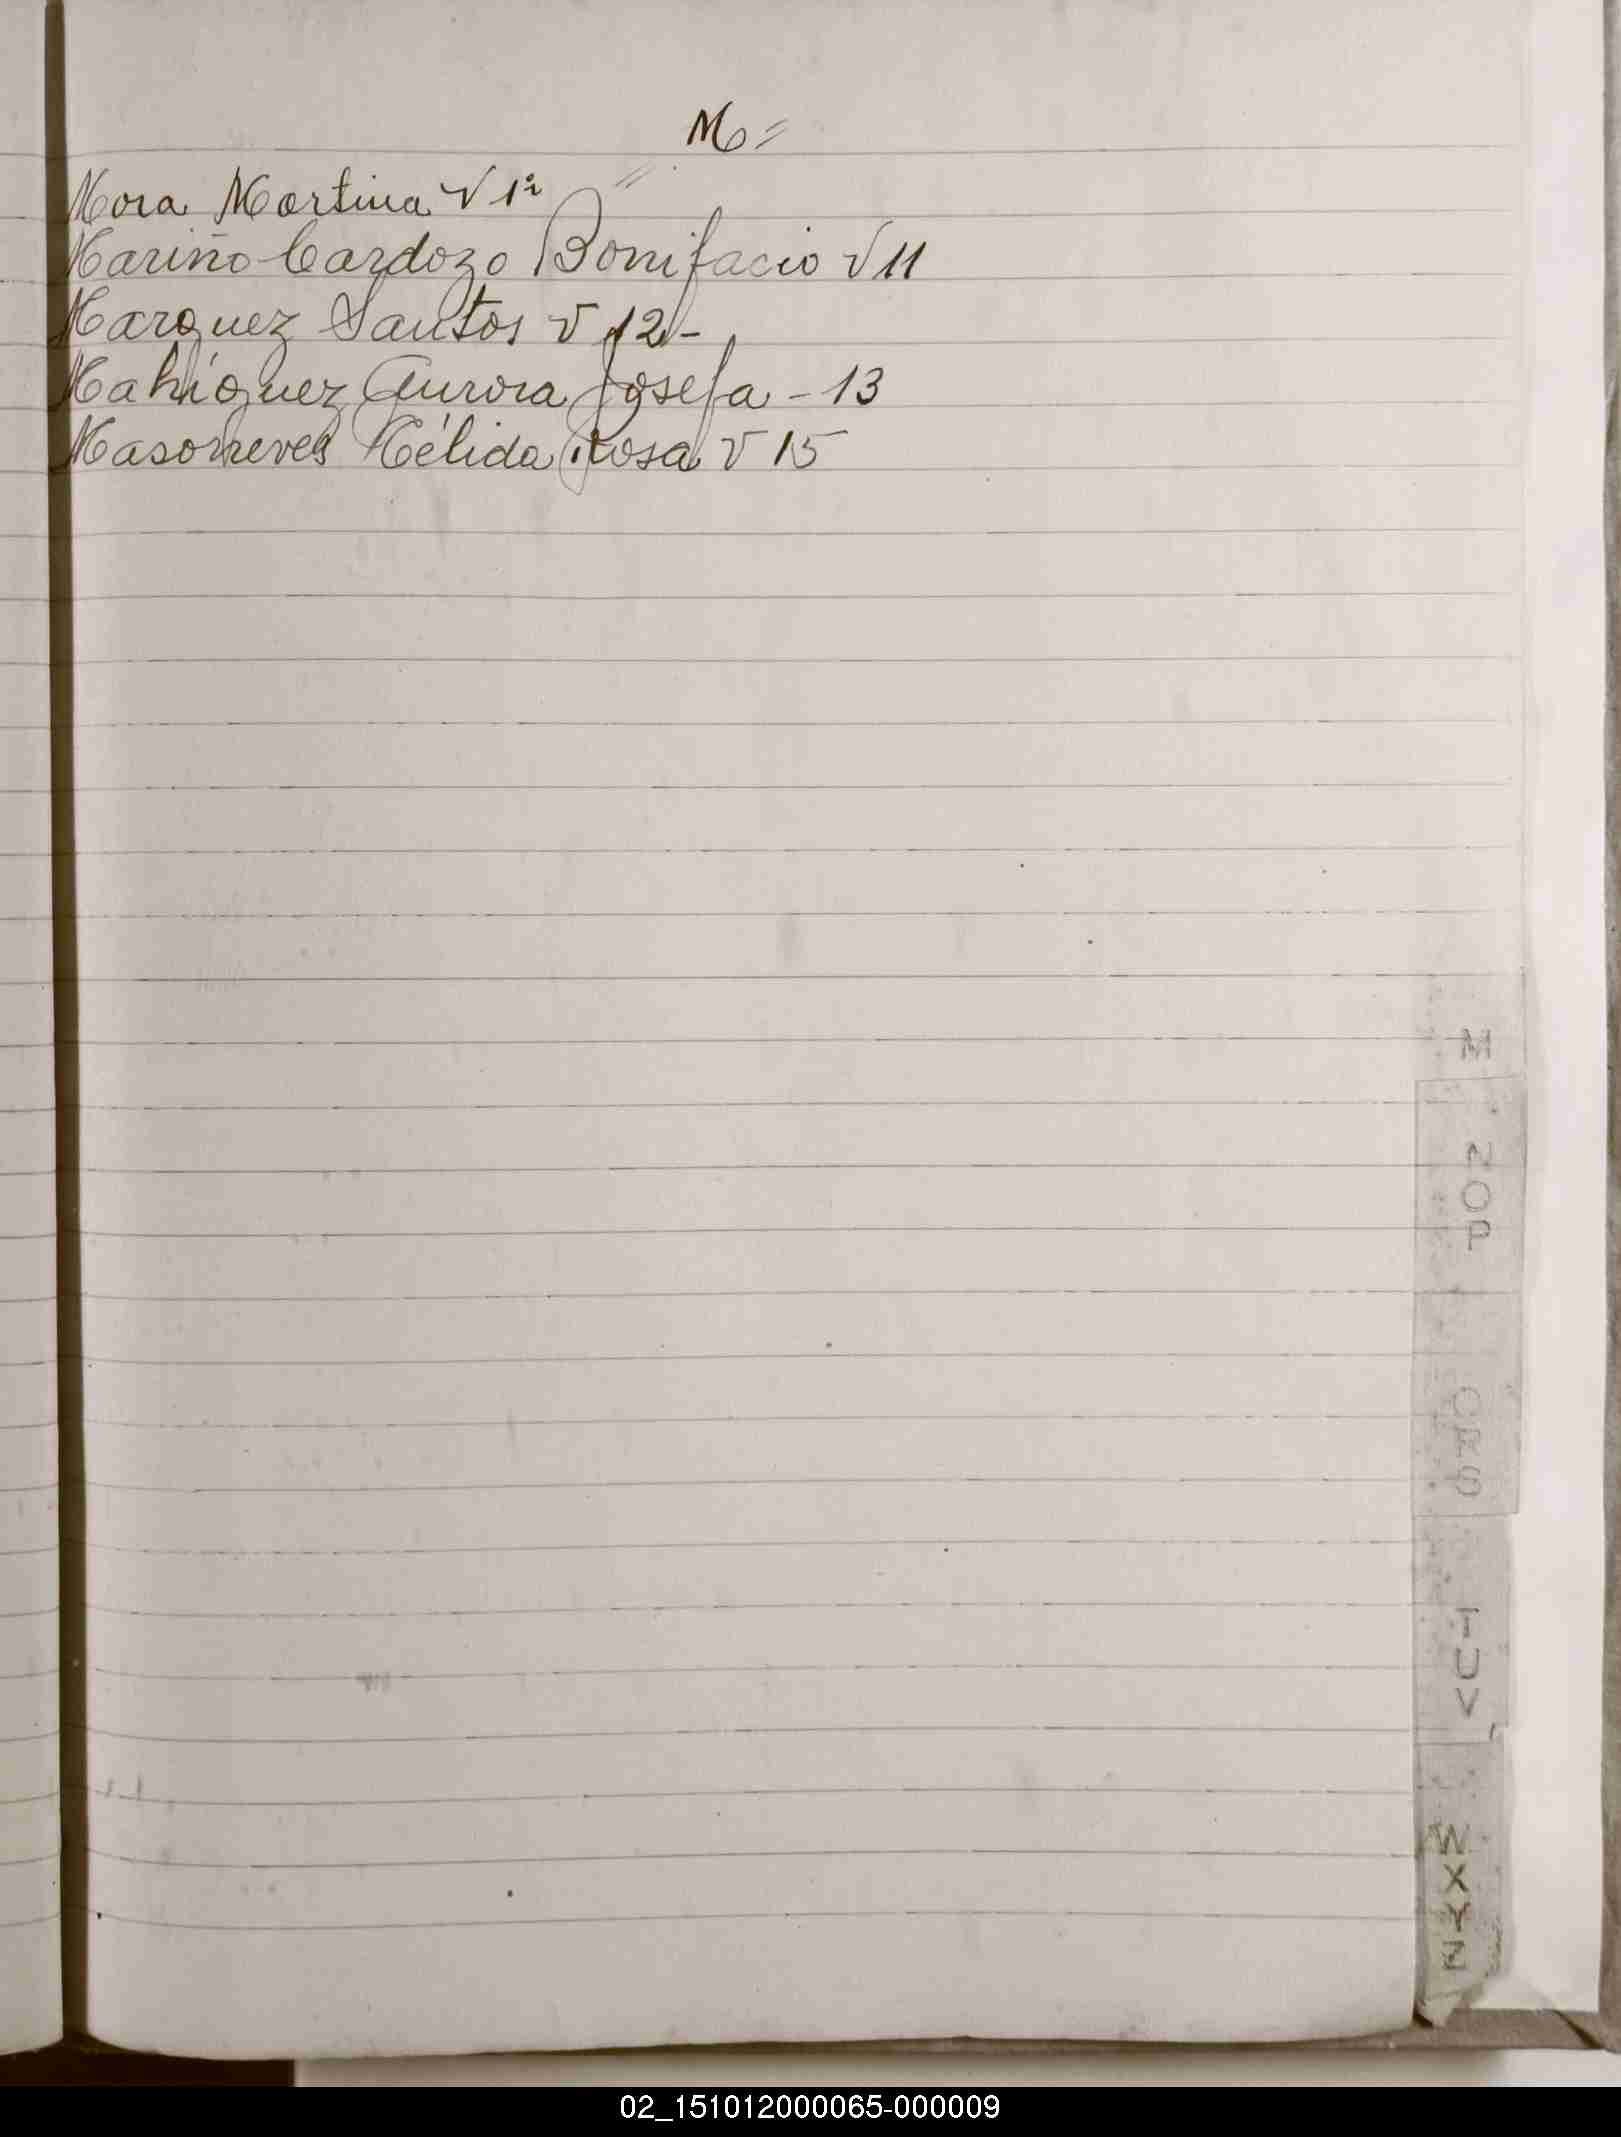 M=
Mora Martina √ 1ª
Mariño Cardozo Bonifacio √ 11
Marquez Santos √ 12-
Mahiquez Aurora Josefa - 13
Nélida Rosa √ 15
M
N
O
P
Q
R
S
T
U
V
W
X
Y
Z
02_151012000065-000009